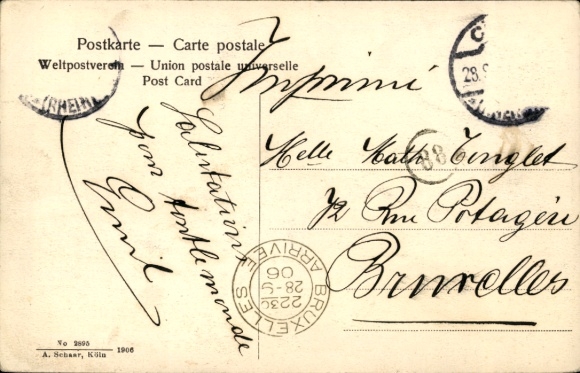 Postkarte — Carte postale
Weltpostverein — Union postale universelle
Post Card
Imprimé
(RHEIN)
C
28.9
Salutations
pour toutlemonde
Emil
Melle Math Tinglet
88
72 Rue Potagère
Bruxelles
BRUXELLES
2230
28-9
06
ARRIVEE
Vo 2895
A. Schaar, Köln
1906